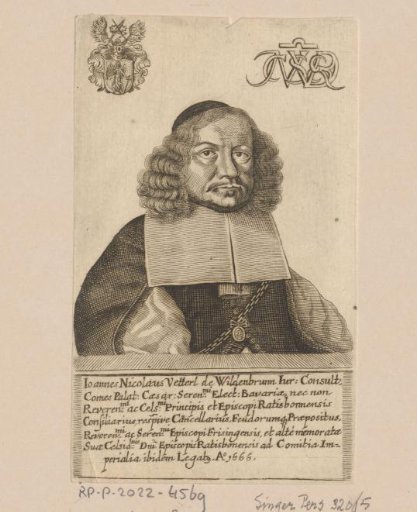 Ioannes Nicolaus Vetterl de Wildenbrunn Iur: Consult:
Comes Palat: Cæsar: Seren:mi Elect: Bavariæ, nec non
Reveren:mi ac Cels:mi Principis et Episcopi Ratisbonensis
Consiliarius, respive Cancellarius, Feudorumq. Præpositus,
Reveren:mi ac Seren:mi Episcopi Frisingensis, et altè memoratæ
Suæ Celsit:nis Dni Episcopi Ratisbonensis ad Comitia Im-
perialia ibidem Legatq. Aº 1666.
RP-P-2022-4569
Singer Pers 320/5